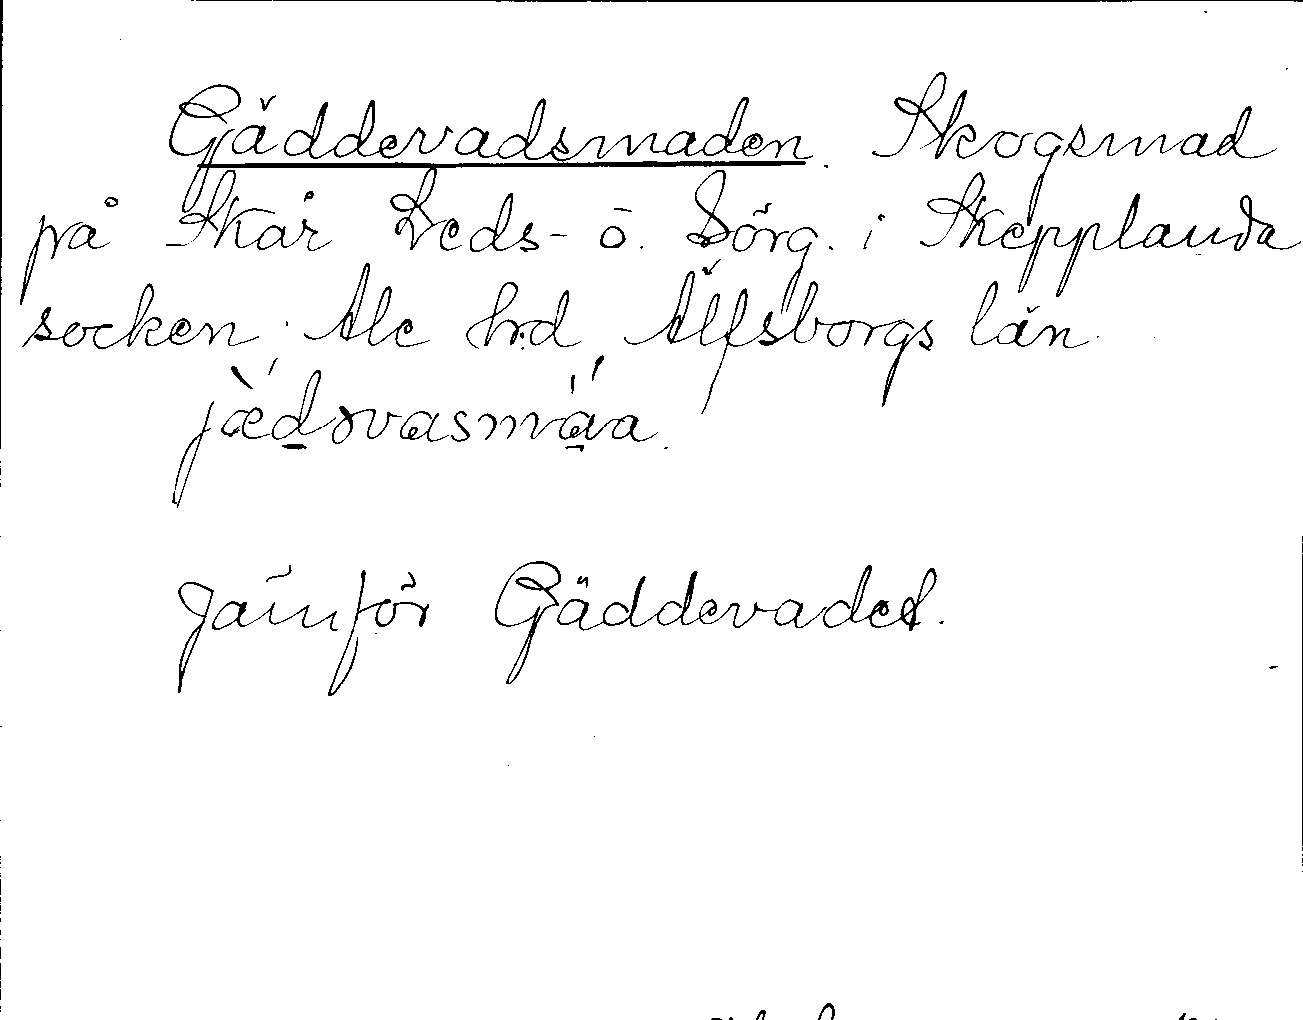 Gäddevadsmaden. Skogsmad
på Skår Leds- o. Sörg. i Skepplanda
socken, Ale hrd, Älfsborgs län.
Jämför Gäddevadet.